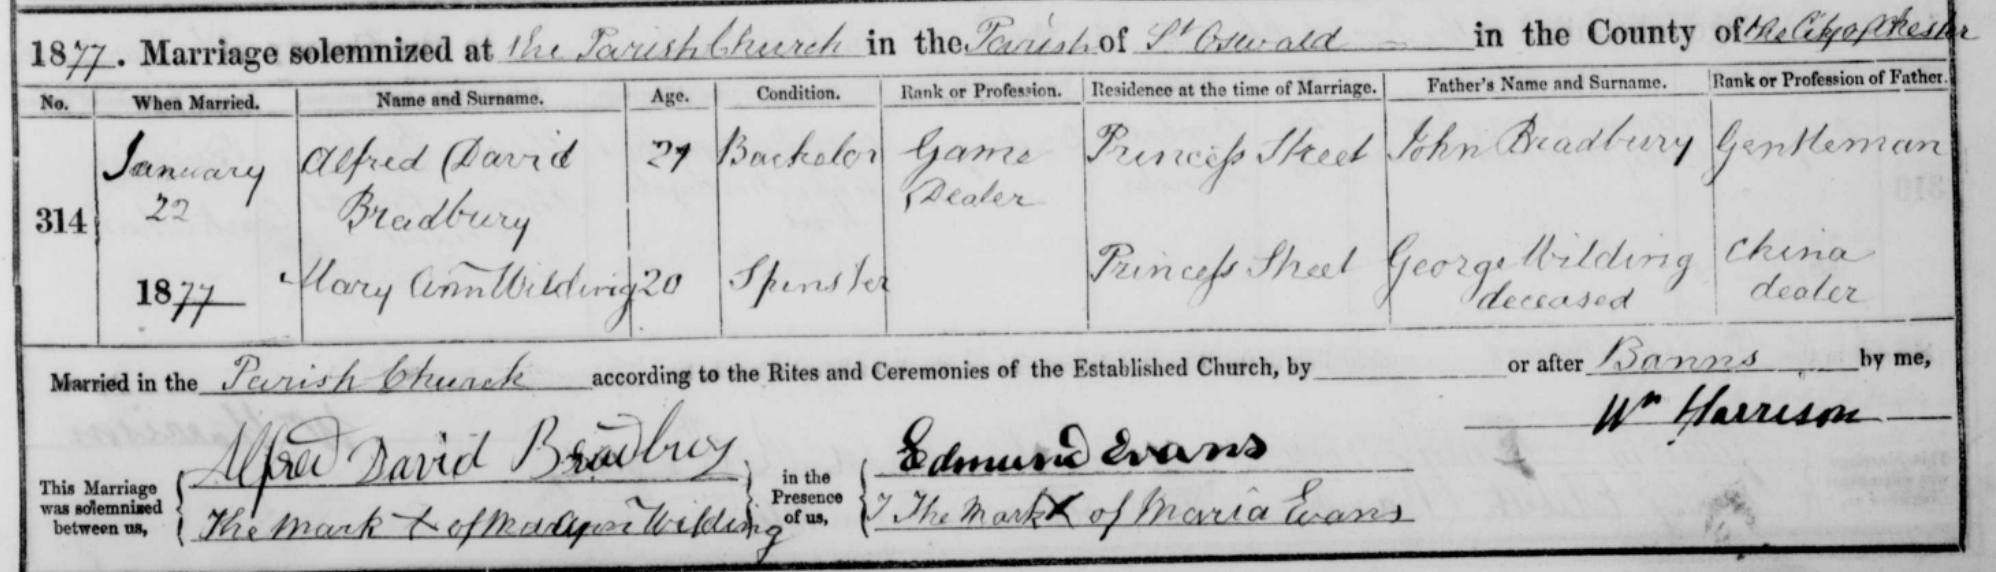 1877. Marriage solemnized at the Parish Church in the Parish of St Oswald in the County of the City of Chester
No. When Married. Name and Surname. Age. Condition. Rank or Profession. Residence at the time of Marriage. Father's Name and Surname. Rank or Profession of Father.
314
January
22
1877
Alfred David
Bradbury
Bachelor
Game
Dealer
Princess Street
John Bradbury
Gentleman
Mary Ann Wilding
20
Spinster
Princess Street
George Wilding
deceased
China
dealer
Married in the Parish Church according to the Rites and Ceremonies of the Established Church, by or after Banns by me,
Wm Harrison
This Marriage
was solemnized
between us,
Alfred David Bradbury
The Mark X of Mary Ann Wilding
in the
Presence
of us,
Edmund Evans
The Mark X of Maria Evans